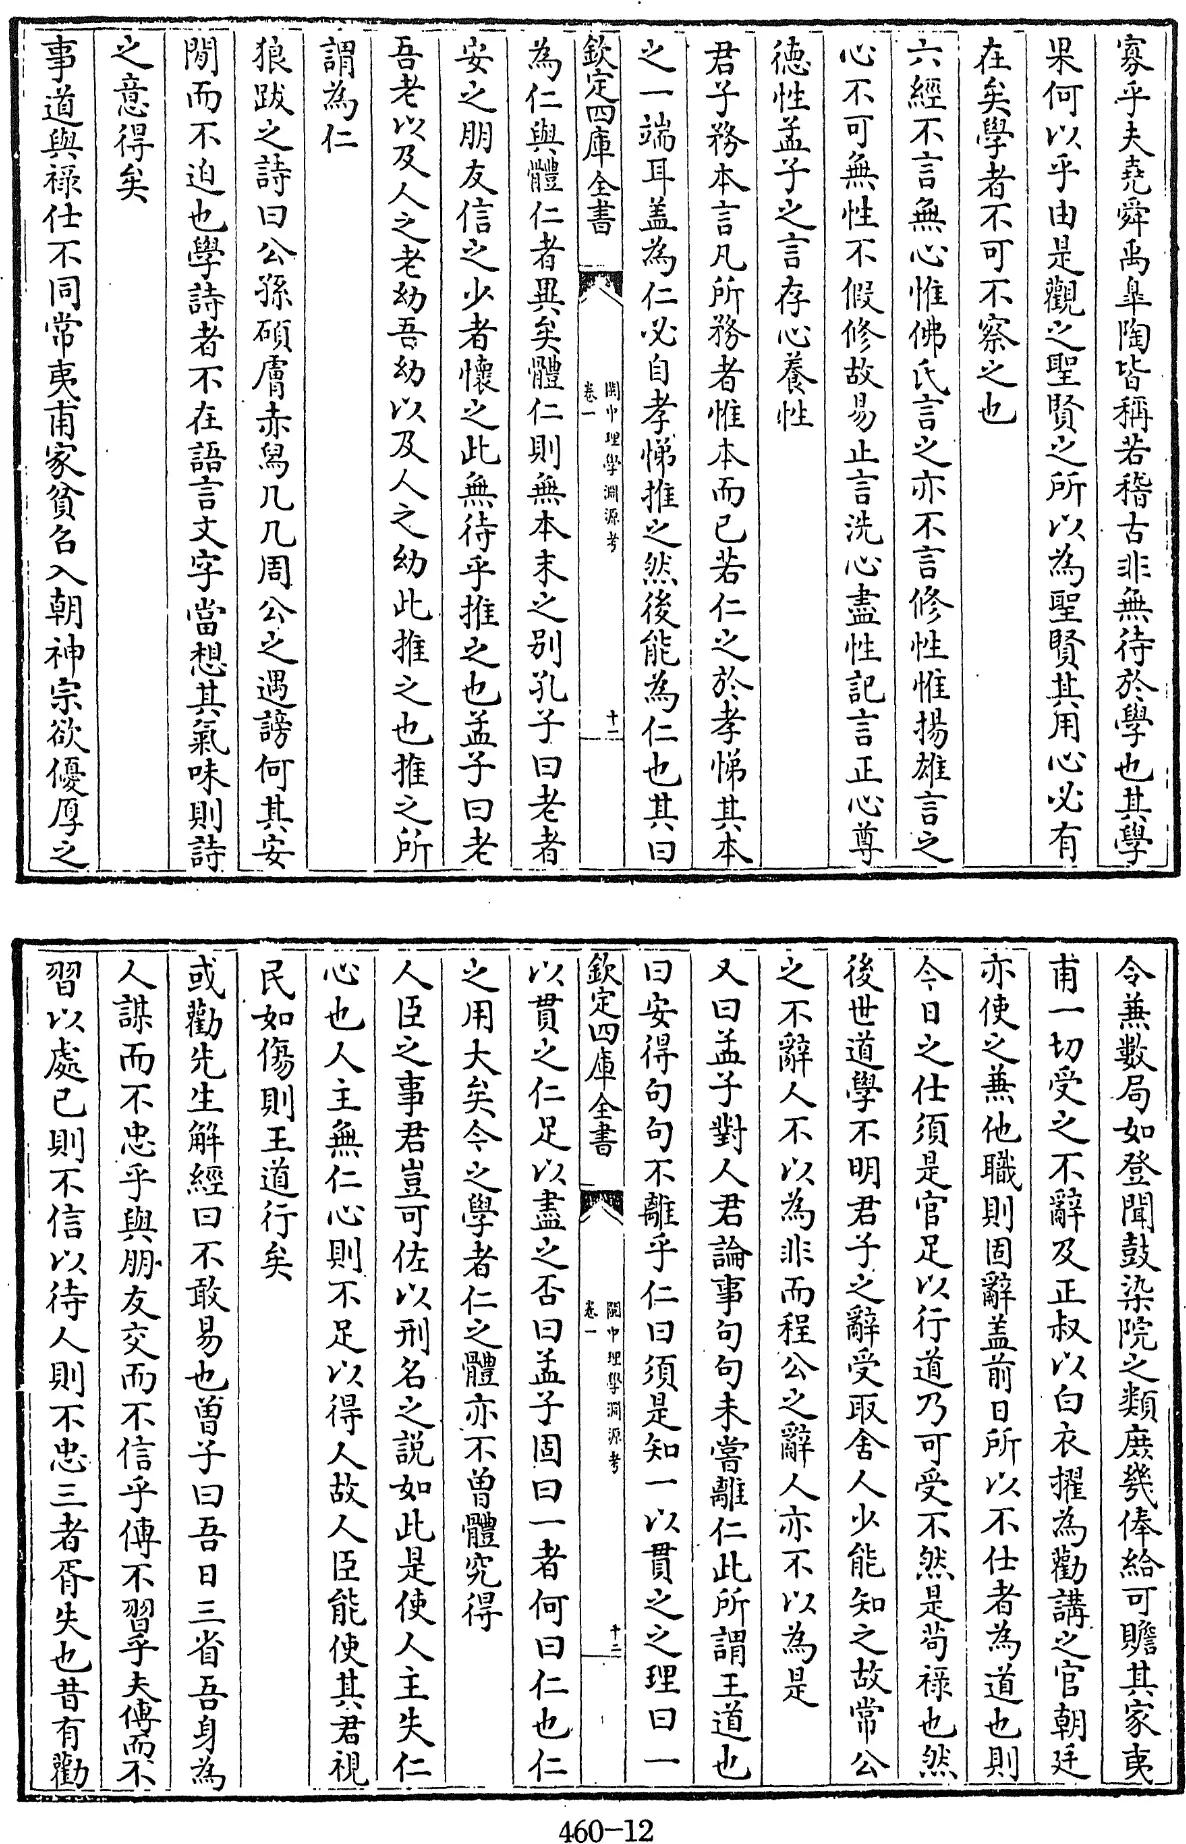 寡乎夫堯舜禹臯陶皆稱若稽古非無待於學也其學
果何以乎由是觀之聖賢之所以為聖賢其用心必有
在矣學者不可不察之也
六經不言無心惟佛氏言之亦不言修性惟揚雄言之
心不可無性不假修故易止言洗心盡性記言正心尊
德性孟子之言存心養性
君子務本言凡所務者惟本而已若仁之於孝悌其本
之一端耳盖為仁必自孝悌推之然後能為仁也其曰
欽定四庫全書
閩中理學淵源考
卷一
十二
為仁與體仁者異矣體仁則無本末之别孔子曰老者
安之朋友信之少者懷之此無待乎推之也孟子曰老
吾老以及人之老幼吾幼以及人之幼此推之也推之所
謂為仁
狼跋之詩曰公孫碩膚赤舄几几周公之遇謗何其安
閒而不迫也學詩者不在語言文字當想其氣味則詩
之意得矣
事道與祿仕不同常夷甫家貧召入朝神宗欲優厚之
令兼數局如登聞鼓染院之類庶幾俸給可贍其家夷
甫一切受之不辭及正叔以白衣擢為勸講之官朝廷
亦使之兼他職則固辭盖前日所以不仕者為道也則
今日之仕須是官足以行道乃可受不然是苟祿也然
後世道學不明君子之辭受取舍人少能知之故常公
之不辭人不以為非而程公之辭人亦不以為是
又曰孟子對人君論事句句未嘗離仁此所謂王道也
曰安得句句不離乎仁曰須是知一以貫之之理曰一
欽定四庫全書
閩中理學淵源考
卷一
十二
以貫之仁足以盡之否曰孟子固曰一者何曰仁也仁
之用大矣今之學者仁之體亦不曾體究得
人臣之事君豈可佐以刑名之說如此是使人主失仁
心也人主無仁心則不足以得人故人臣能使其君視
民如傷則王道行矣
或勸先生解經曰不敢易也曾子曰吾日三省吾身為
人謀而不忠乎與朋友交而不信乎傳不習乎夫傳而不
習以處己則不信以待人則不忠三者胥失也昔有勸
460-12